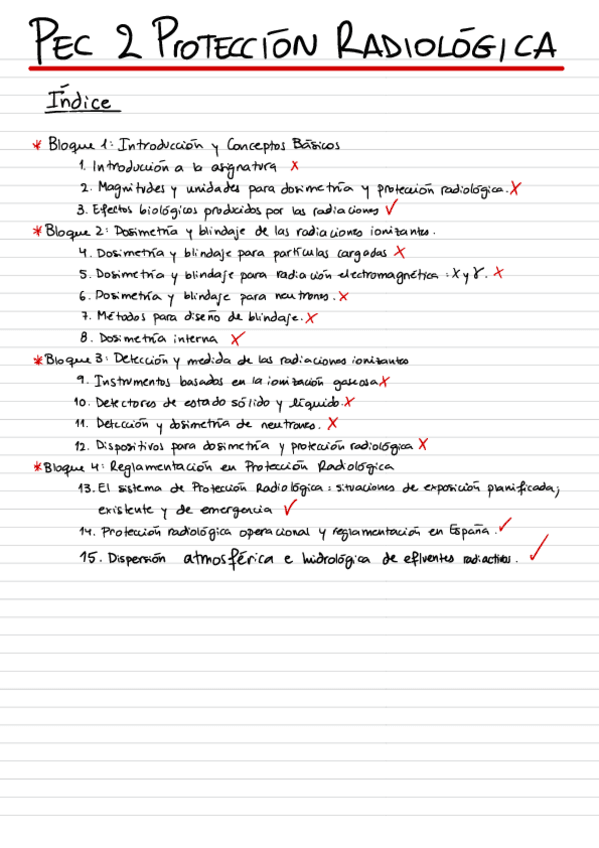 PEC 2 PROTECCIÓN RADIOLÓGICA
Índice
* Bloque 1: Introducción y Conceptos Básicos
1. Introducción a la asignatura X
2. Magnitudes y unidades para dosimetría y protección radiológica. X
3. Efectos biológicos producidos por las radiaciones ✓
* Bloque 2: Dosimetría y blindaje de las radiaciones ionizantes.
4. Dosimetría y blindaje para partículas cargadas X
5. Dosimetría y blindaje para radiación electromagnética: X y γ. X
6. Dosimetría y blindaje para neutrones. X
7. Métodos para diseño de blindaje. X
8. Dosimetría interna X
* Bloque 3: Detección y medida de las radiaciones ionizantes
9. Instrumentos basados en la ionización gaseosa X
10. Detectores de estado sólido y líquido. X
11. Detección y dosimetría de neutrones. X
12. Dispositivos para dosimetría y protección radiológica X
* Bloque 4: Reglamentación en Protección Radiológica
13. El sistema de Protección Radiológica: situaciones de exposición planificada,
existente y de emergencia ✓
14. Protección radiológica operacional y reglamentación en España. ✓
15. Dispersión atmosférica e hidrológica de efluentes radiactivos. ✓